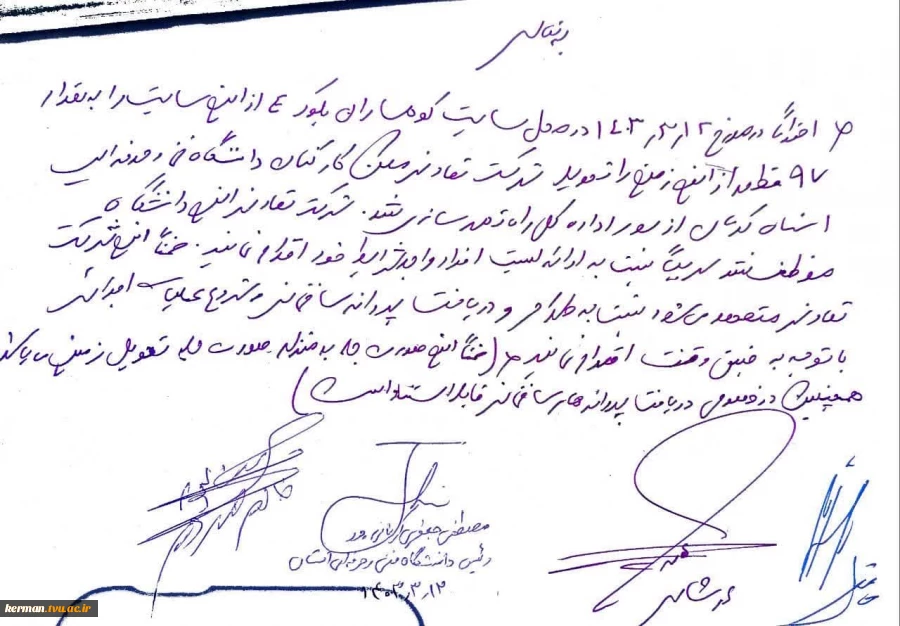 بسمه تعالی
احتراماً در مورخ ۱۴۰۳,۳,۱۲ در محل سایت کوهساران بلوک ۴ از این سایت را به مقدار
۹۷ قطعه از این زمین را تحویل شرکت تعاونی مسکن کارکنان دانشگاه فنی و حرفه ایی
استان کرمان از سوی اداره کل راه و شهرسازی شد. شرکت تعاونی این دانشگاه
موظف هستند سریعاً نسبت به ارائه لیست افراد واجد شرایط خود اقدام نمایند. ضمناً این شرکت
تعاونی متعهد می شود نسبت به طراحی و دریافت پروانه ساختمانی و شروع عملیات اجرائی
با توجه به ضیق وقت اقدام نمایند (ضمناً این صورت جلسه به منزله صورت جلسه تحویل زمین می باشد
همچنین در خصوص دریافت پروانه های ساختمانی قابل استناد است)
مصطفی جعفری
رئیس دانشگاه فنی و حرفه ای استان
۱۴۰۳,۳,۱۲
kerman.tvu.ac.ir